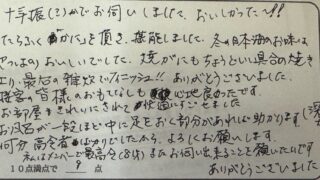 十手振(?)かでお伺いしました、おいしかった〜!!
たらふく"かに"を頂き、堪能しました。冬の日本海のお味は
おいしいでした。焼がにもちょうどいい具合の焼き
最后の雑炊でフィニッシュ!! ありがとうございました。
接客、皆様のおもてなしも 心地良かったです
お部屋もきれいにされて 快適にすごせました
お風呂が一段ほど中に足をおく部分があれば助かります
何分高令者ばかりでしたから、よろしくお願いします。
私はメンバーで最高令(84才)またお伺い出来ることを願いたいです
10点満点で 9 点 ありがとうございました